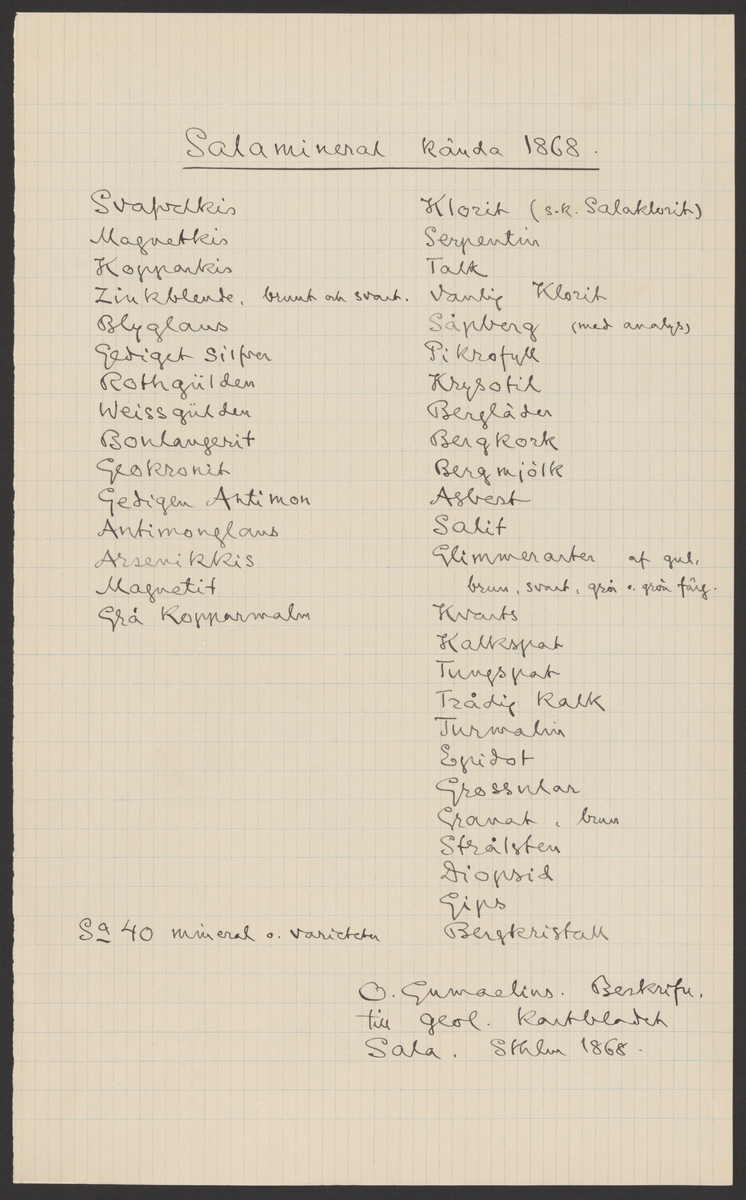 Salamineral kända 1868.
Svafvelkis
Magnetkis
Kopparkis
Zinkblende, brunt och svart.
Blyglans
Gediget Silfver
Rothgülden
Weissgülden
Boulangerit
Geokronit
Gedigen Antimon
Antimonglans
Arsenikkis
Magnetit
Grå Kopparmalm
Sa 40 mineral o. varieteter
Klorit (s.k. Salaklorit)
Serpentin
Talk
Vanlig Klorit
Såpberg (med analys)
Pikrofyll
Krysotil
Bergläder
Bergkork
Bergmjölk
Asbest
Salit
Glimmerarter af gul,
brun, svart, grå o. grön färg.
Kvarts
Kalkspat
Tungspat
Trådig Kalk
Turmalin
Epidot
Grossular
Granat, brun
Strålsten
Diopsid
Gips
Bergkristall
O. Gumaelius. Beskrifn.
till geol. Kartbladet
Sala. Sthlm 1868.